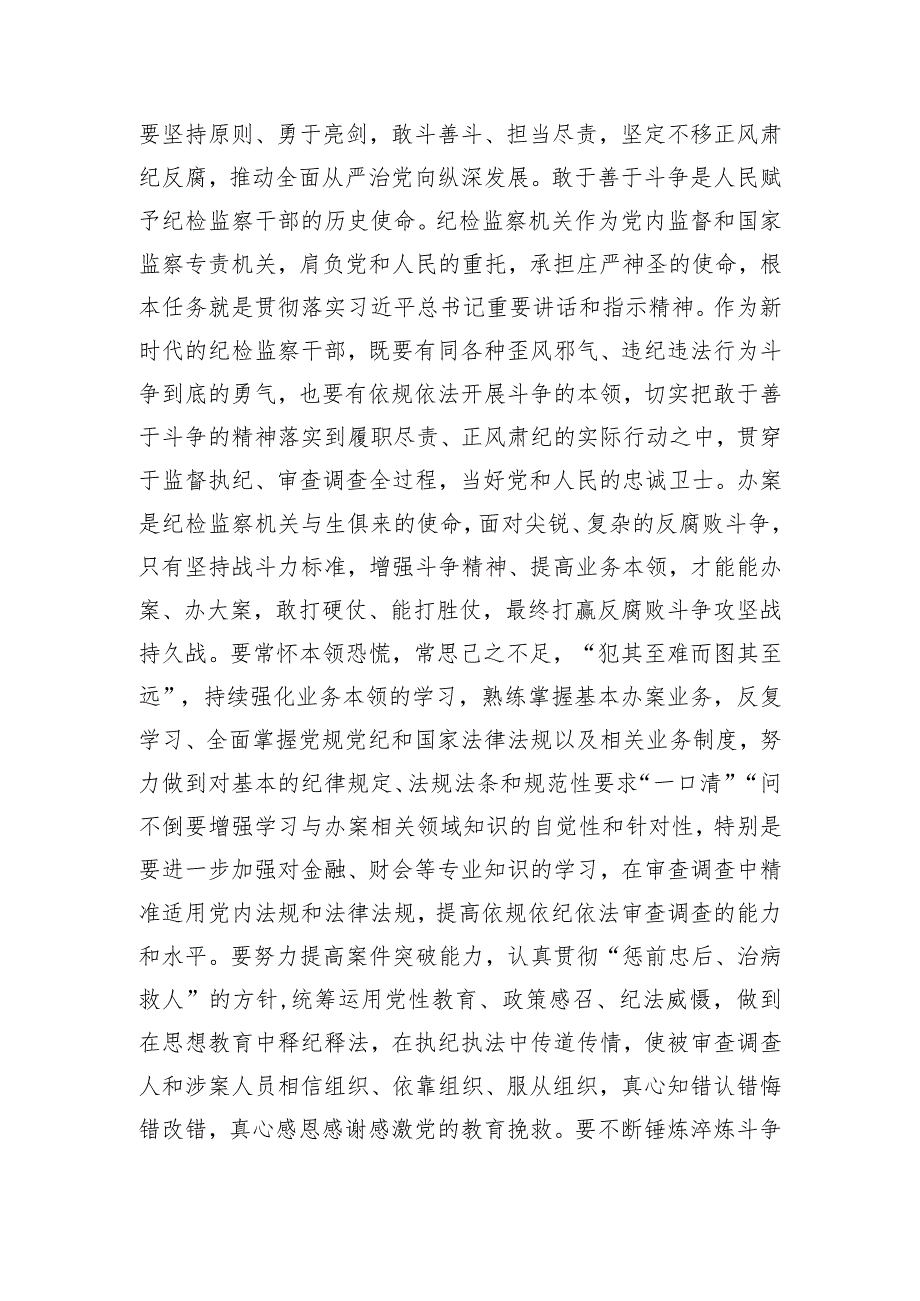 要坚持原则、勇于亮剑，敢斗善斗、担当尽责，坚定不移正风肃
纪反腐，推动全面从严治党向纵深发展。敢于善于斗争是人民赋
予纪检监察干部的历史使命。纪检监察机关作为党内监督和国家
监察专责机关，肩负党和人民的重托，承担庄严神圣的使命，根
本任务就是贯彻落实习近平总书记重要讲话和指示精神。作为新
时代的纪检监察干部，既要有同各种歪风邪气、违纪违法行为斗
争到底的勇气，也要有依规依法开展斗争的本领，切实把敢于善
于斗争的精神落实到履职尽责、正风肃纪的实际行动之中，贯穿
于监督执纪、审查调查全过程，当好党和人民的忠诚卫士。办案
是纪检监察机关与生俱来的使命，面对尖锐、复杂的反腐败斗争，
只有坚持战斗力标准，增强斗争精神、提高业务本领，才能能办
案、办大案，敢打硬仗、能打胜仗，最终打赢反腐败斗争攻坚战
持久战。要常怀本领恐慌，常思己之不足，“犯其至难而图其至
远”，持续强化业务本领的学习，熟练掌握基本办案业务，反复
学习、全面掌握党规党纪和国家法律法规以及相关业务制度，努
力做到对基本的纪律规定、法规法条和规范性要求“一口清”“问
不倒要增强学习与办案相关领域知识的自觉性和针对性，特别是
要进一步加强对金融、财会等专业知识的学习，在审查调查中精
准适用党内法规和法律法规，提高依规依纪依法审查调查的能力
和水平。要努力提高案件突破能力，认真贯彻“惩前忠后、治病
救人”的方针,统筹运用党性教育、政策感召、纪法威慑，做到
在思想教育中释纪释法，在执纪执法中传道传情，使被审查调查
人和涉案人员相信组织、依靠组织、服从组织，真心知错认错悔
错改错，真心感恩感谢感激党的教育挽救。要不断锤炼淬炼斗争